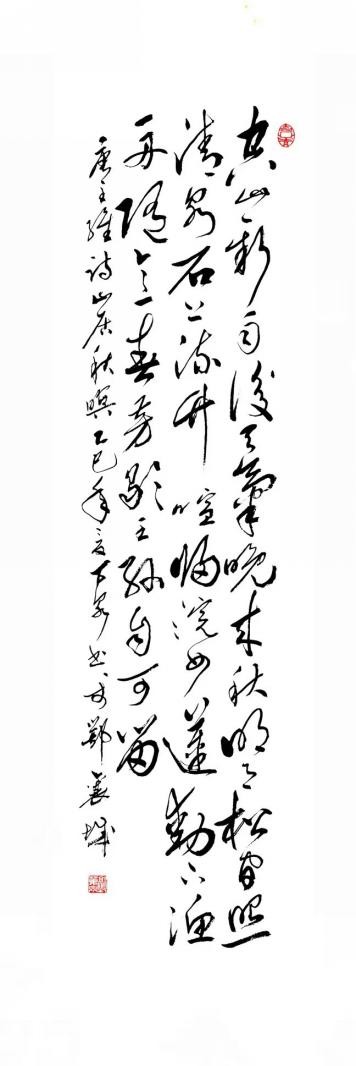 空山新雨後天氣晚来秋明月松間照
清泉石上流竹喧歸浣女蓮動下漁
舟隨意春芳歇王孫自可留
唐王維詩山居秋暝乙巳年